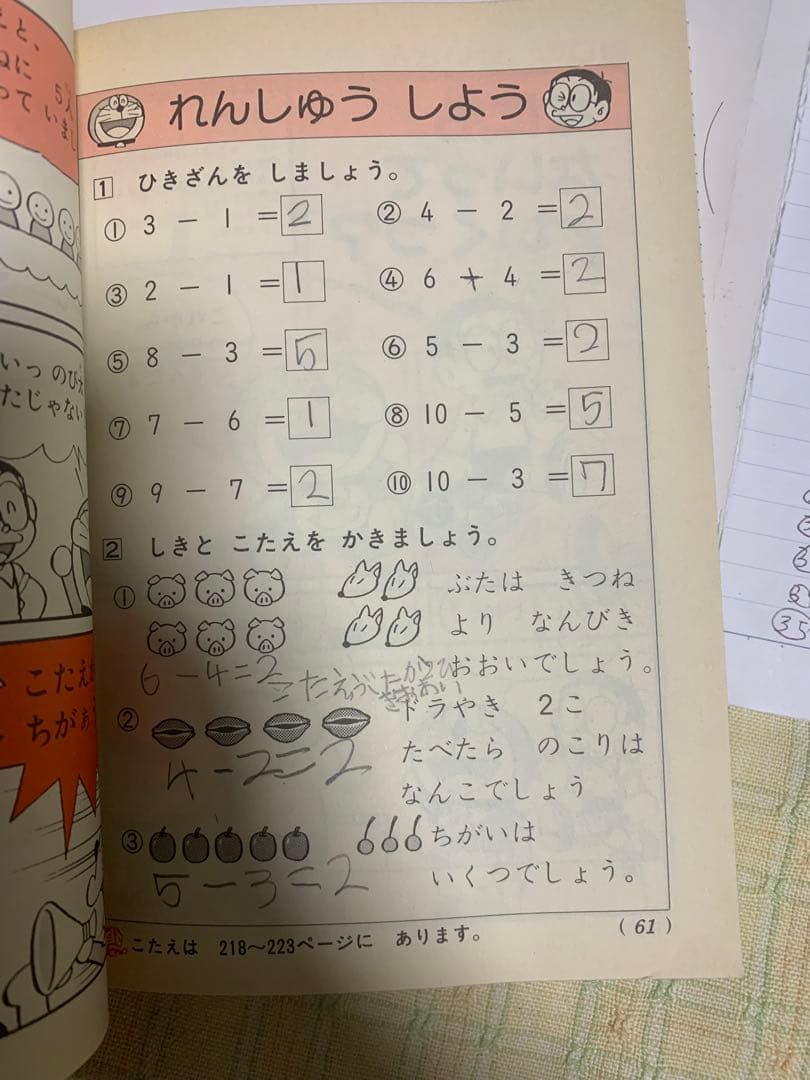 れんしゅう しよう
1 ひきざんを しましょう。
① 3 − 1 = 2
② 4 − 2 = 2
③ 2 − 1 = 1
④ 6 + 4 = 2
⑤ 8 − 3 = 5
⑥ 5 − 3 = 2
⑦ 7 − 6 = 1
⑧ 10 − 5 = 5
⑨ 9 − 7 = 2
⑩ 10 − 3 = 7
2 しきと こたえを かきましょう。
① ぶたは きつね
より なんびき
おおいでしょう。
6−4=2
こたえぶたが2ひき
おおい
② ドラやき 2こ
たべたら のこりは
なんこでしょう
4−2=2
③ ちがいは
いくつでしょう。
5−3=2
こたえは 218〜223ページに あります。
(61)
5人
いまし
いっ のび
たじゃない
こたえ
ちがぁ